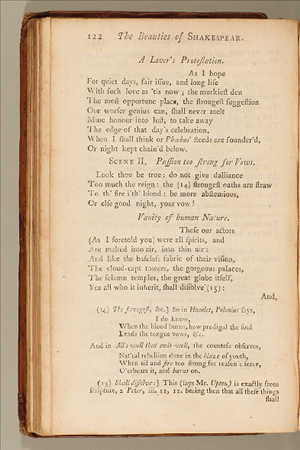 122 The Beauties of SHAKESPEAR.
A Lover's Proteſtation.
As I hope
For quiet days, fair iſſue, and long life
With ſuch love as 'tis now ; the murkieſt den
The moſt opportune place, the ſtrongeſt ſuggeſtion
Our worſer genius can, ſhall never melt
Mine honour into luſt, to take away
The edge of that day's celebration,
When I ſhall think or Phœbus' ſteeds are founder'd,
Or night kept chain'd below.
SCENE II. Paſſion too ſtrong for Vows.
Look thou be true: do not give dalliance
Too much the reign: the (14) ſtrongeſt oaths are ſtraw
To th' fire i'th' blood: be more abſtemious,
Or elſe good night, your vow !
Vanity of human Nature.
Theſe our actors
(As I foretold you) were all ſpirits, and
Are melted into air, into thin air:
And like the baſeleſs fabric of their viſion,
The cloud-capt towers, the gorgeous palaces,
The ſolemn temples, the great globe itſelf,
Yea all who it inherit, ſhall diſſolve (15) :
And,
(14) The ſtrongeſt, &c.] So in Hamlet, Polonius ſays,
I do know,
When the blood burns, how prodigal the ſoul
Lends the tongue vows, &c.
And in All's well that ends well, the counteſs obſerves,
Nat'ral rebellion done in the blaze of youth,
When oil and fire too ſtrong for reaſon's force,
O'erbears it, and burns on.
(15) Shall diſſolve:] This (ſays Mr. Upton,) is exactly from
ſcripture, 2 Peter, iii. 11, 12. Seeing then that all theſe things
ſhall